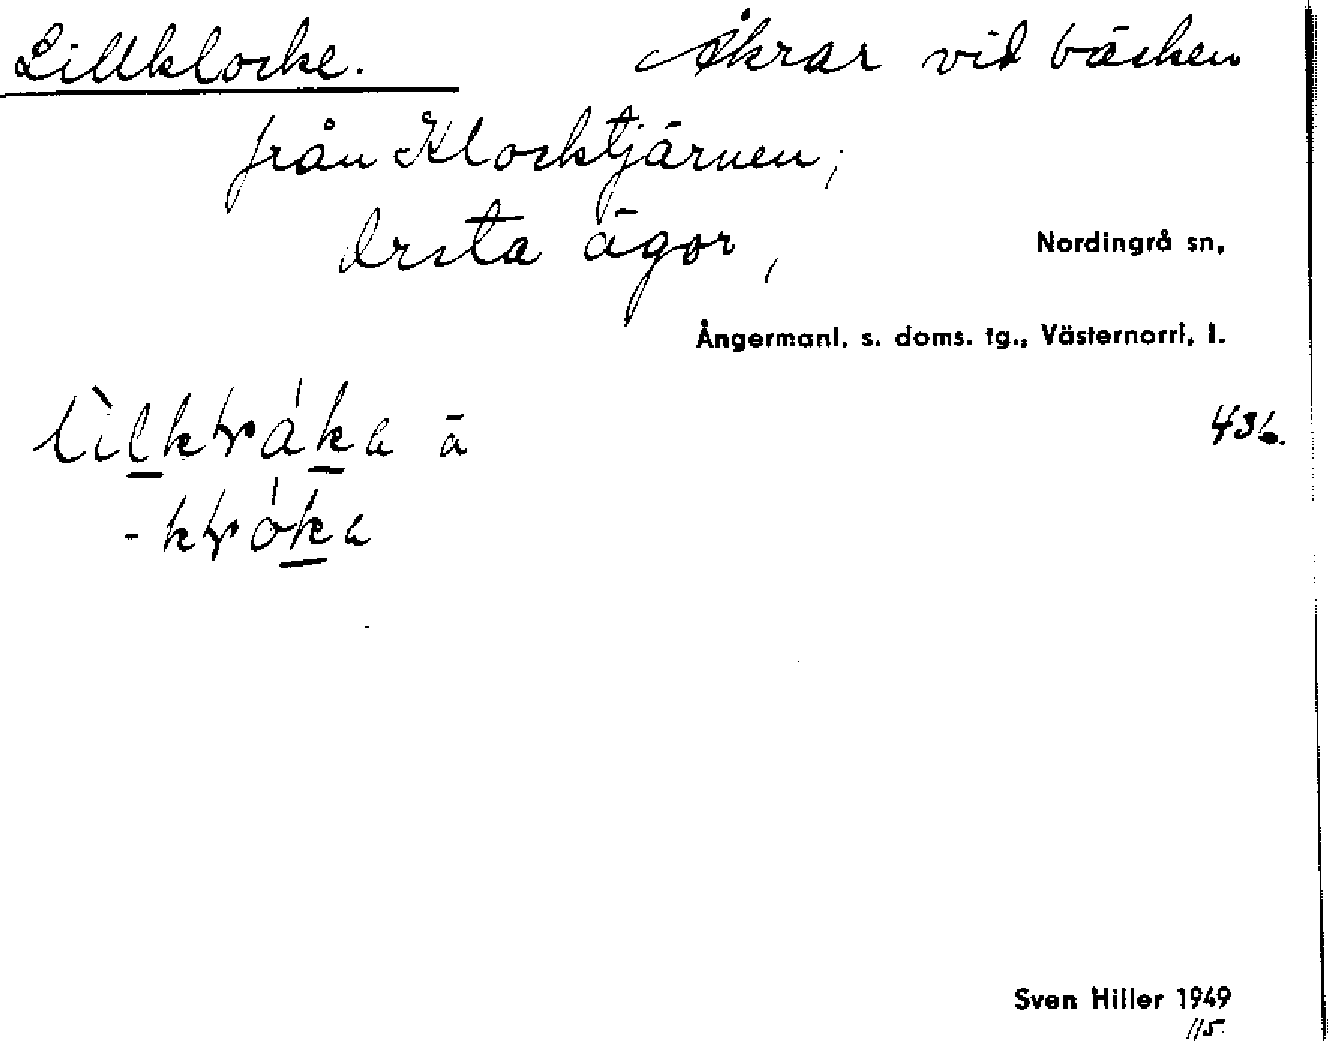 Lillklocke. Åkrar vid bäcken
från Klocktjärnen,
ägor,
Nordingrå sn,
Ångermanl. s. doms. tg., Västernorrl. l.
436.
Sven Hiller 1949